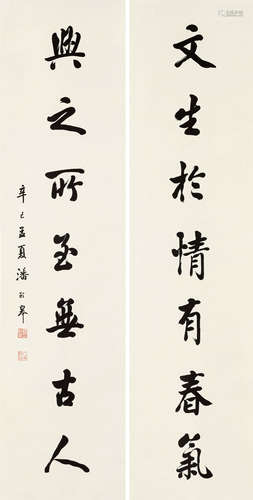 文生於情有春氣
興之所至無古人
辛巳孟夏潘齡皋